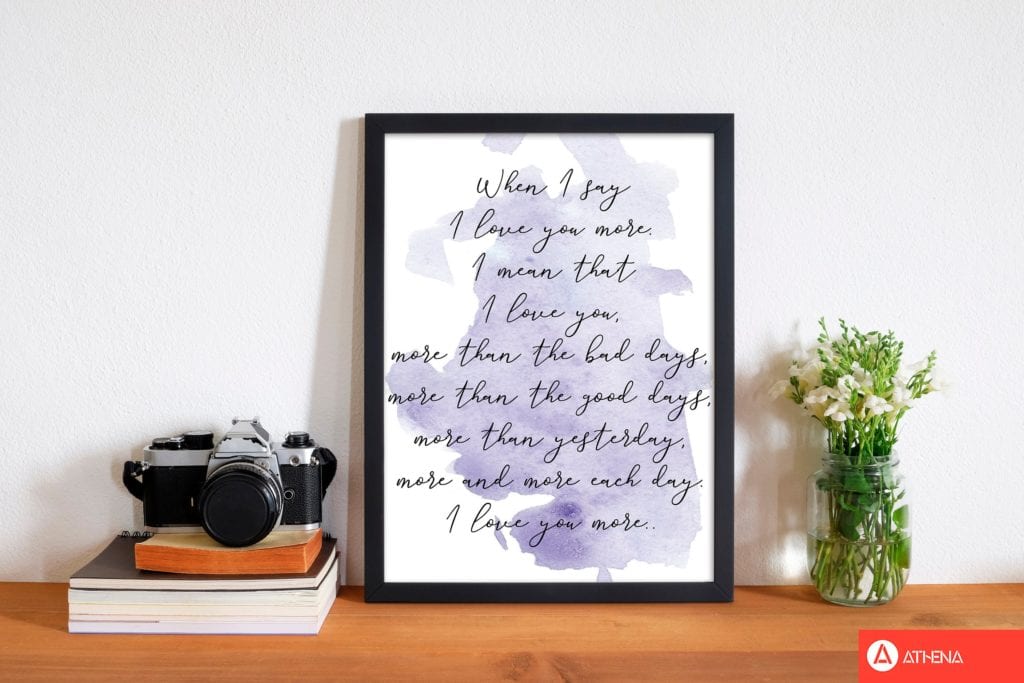 When I say
I love you more.
I mean that
I love you,
more than the bad days,
more than the good days,
more than yesterday,
more and more each day.
I love you more..
ATHENA